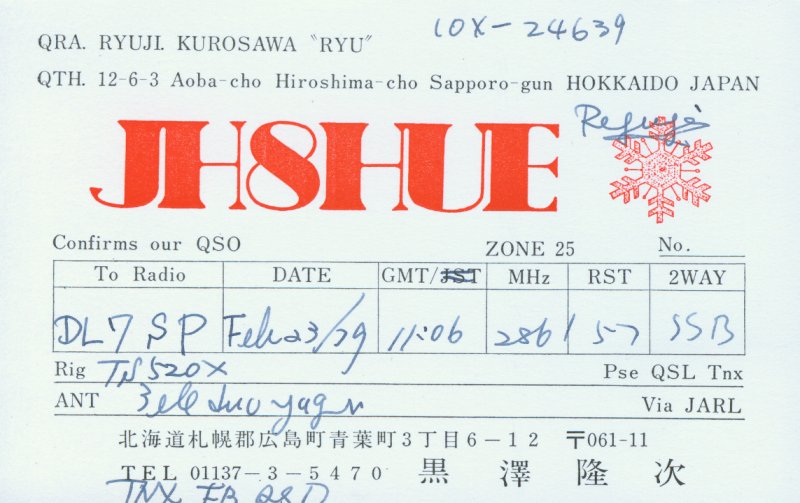 10X-24639
QRA. RYUJI. KUROSAWA "RYU"
QTH. 12-6-3 Aoba-cho Hiroshima-cho Sapporo-gun HOKKAIDO JAPAN
JH8HUE
Confirms our QSO ZONE 25 No.
To Radio DATE GMT/JST MHz RST 2WAY
DL7SP Feb 23/79 11:06 286 57 SSB
Rig TS520X Pse QSL Tnx
ANT 3ele yagi Via JARL
北海道札幌郡広島町青葉町3丁目6-12 〒061-11
TEL 01137-3-5470 黒澤隆次
TNX FB QSO